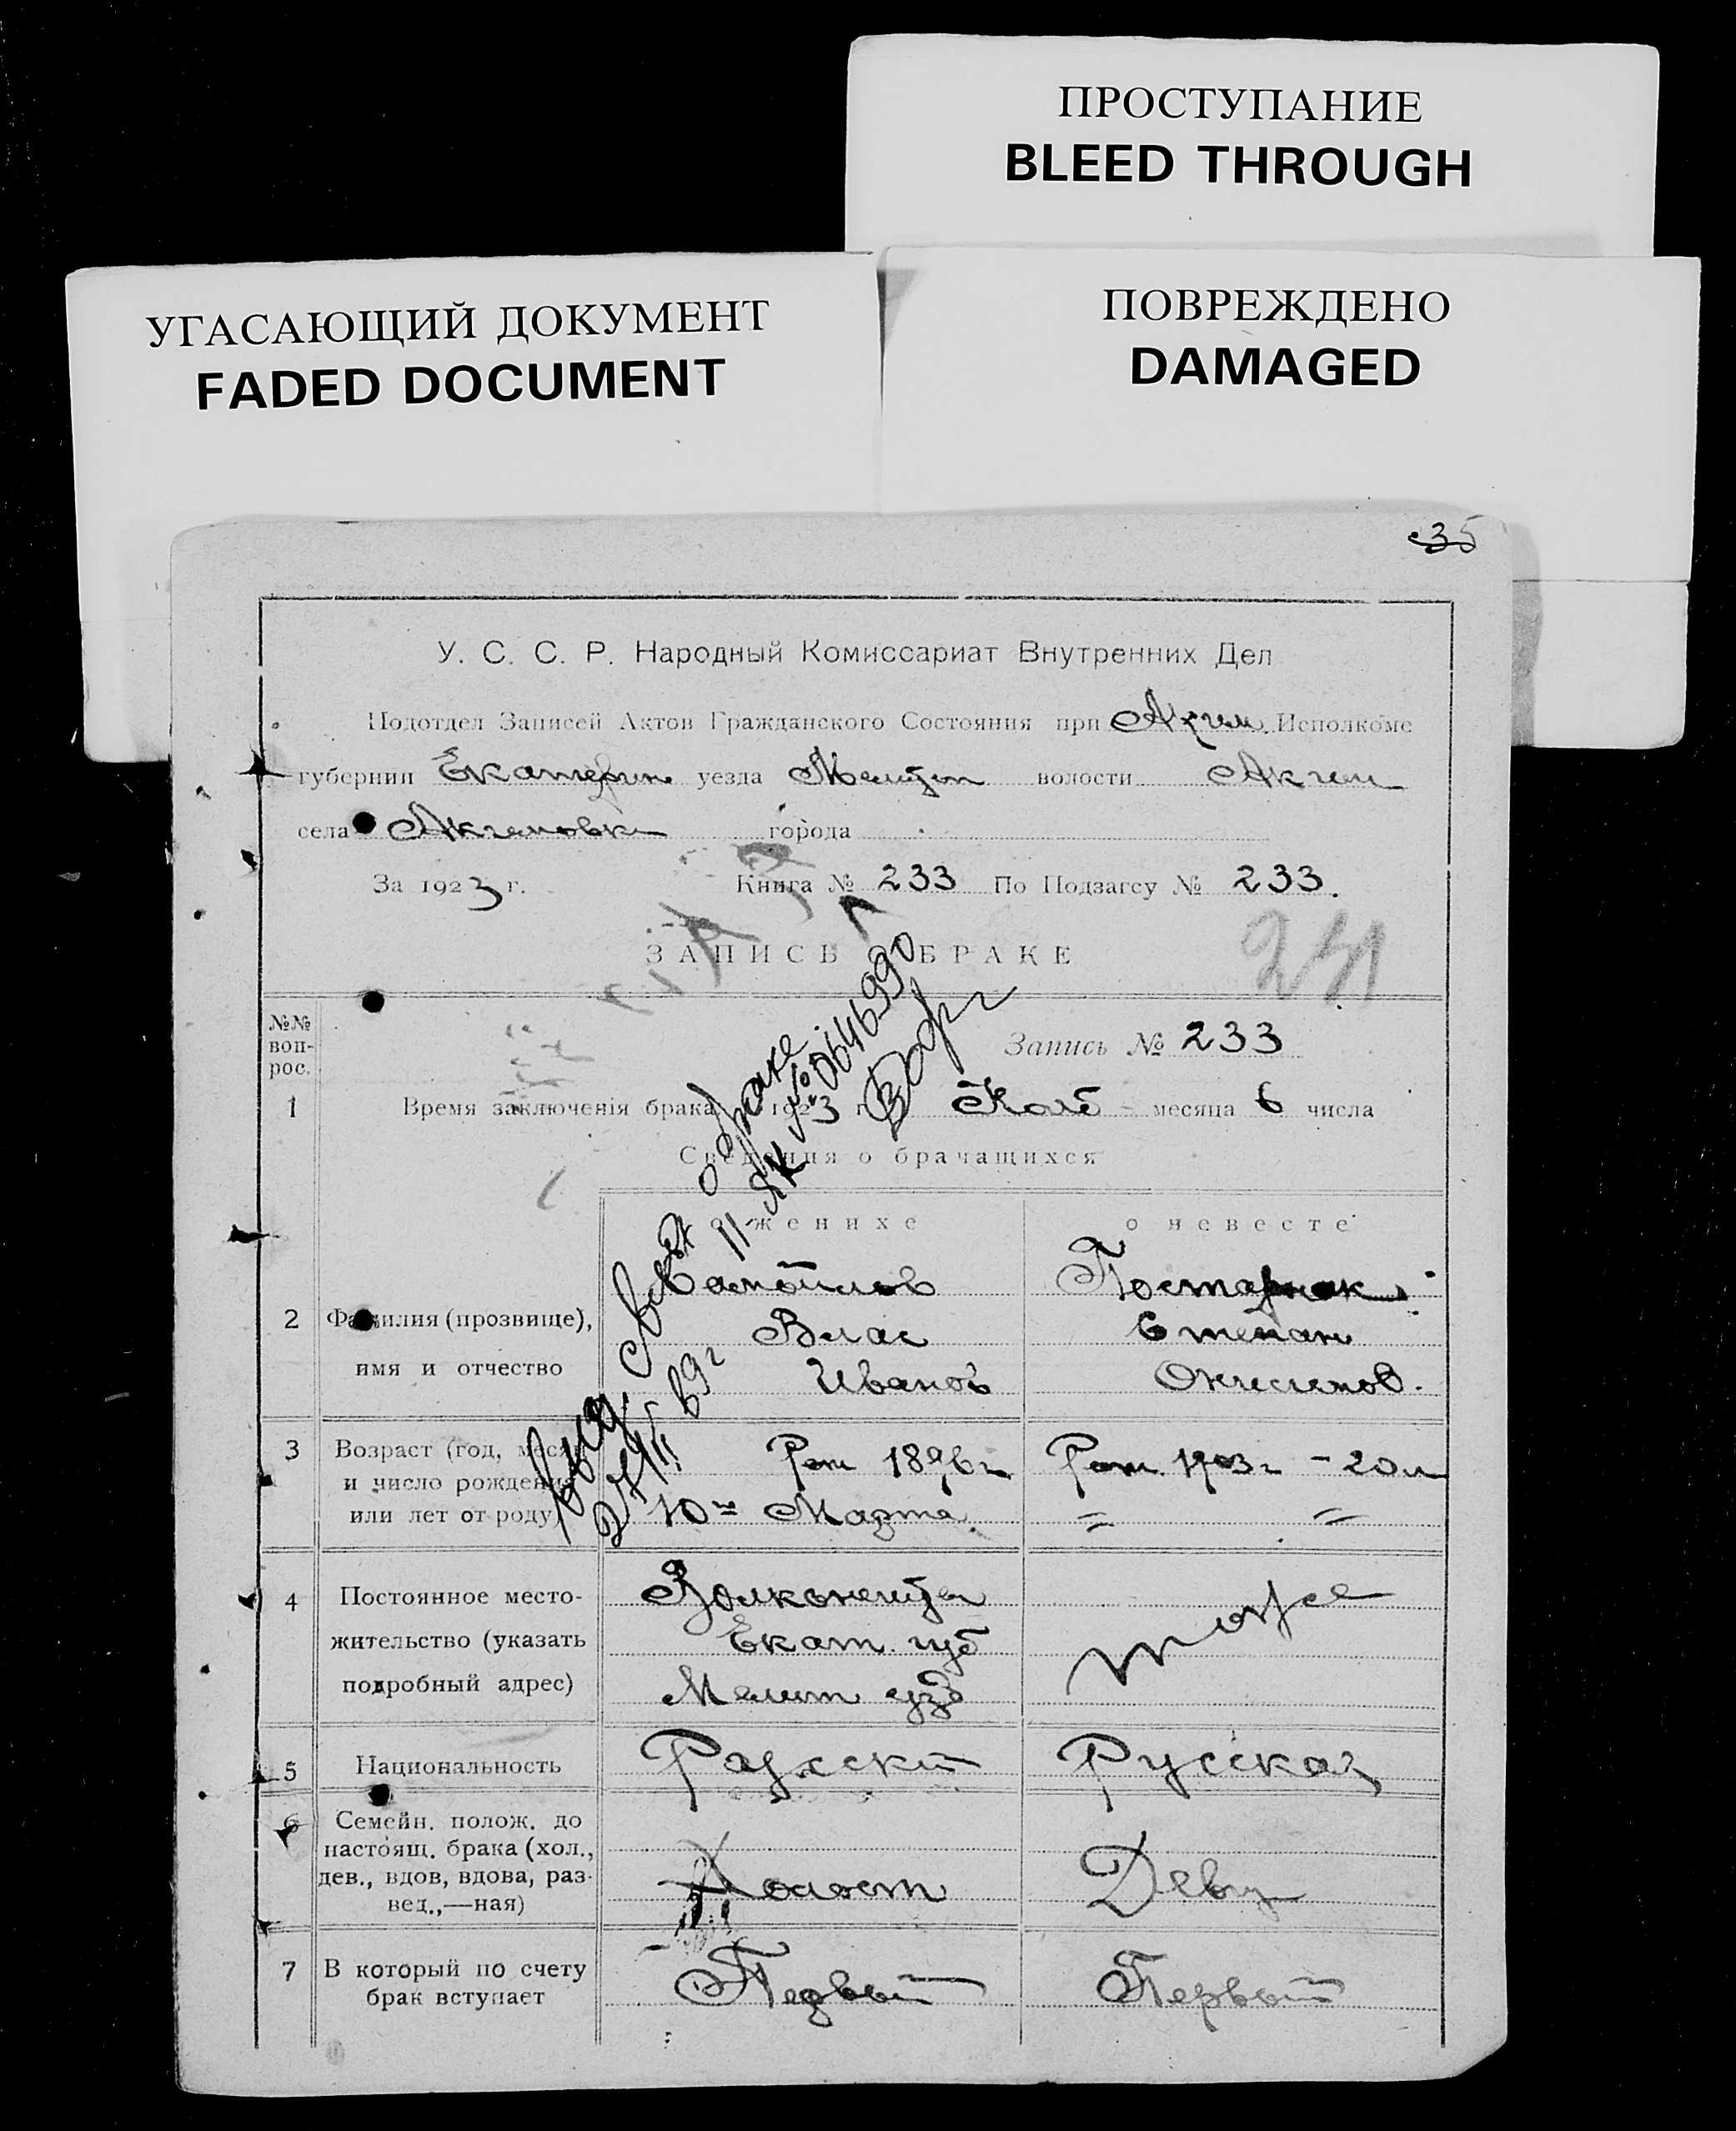 ПРОСТУПАНИЕ
BLEED THROUGH
УГАСАЮЩИЙ ДОКУМЕНТ
FADED DOCUMENT
ПОВРЕЖДЕНО
DAMAGED
35
У. С. С. Р. Народный Комиссариат Внутренних Дел
Подотдел Записей Актов Гражданского Состояния при Акчем. Исполкоме
губернии Екатерин уезда Мелитоп волости Акчем
села Акимовки города
За 1923 г. Книга № 233 По Подзагсу № 233.
ЗАПИСЬ О БРАКЕ
241
№№ воп-рос.
Запись № 233
1 Время заключенія брака 1923 г. Нояб месяца 6 числа
Сведения о брачащихся
о женихе о невесте
2 Фамилия (прозвище), Самойлов Постарнак
Влас Степан
имя и отчество Иванов
3 Возраст (год, месяц Рож 1896 г. Рож. 1903 г. - 20 л
и число рождения
или лет от роду) 10го Марта. = =
4 Постоянное место- 
жительство (указать Екат. губ тоже
подробный адрес) Мелит узд
5 Национальность Русский Русская
6 Семейн. полож. до
настоящ. брака (хол.,
дев., вдов, вдова, раз- Холост Девиц
вед.,—ная)
7 В который по счету Первый Первый
брак вступает
выд. свид о браке
II-ЯК № 0646990